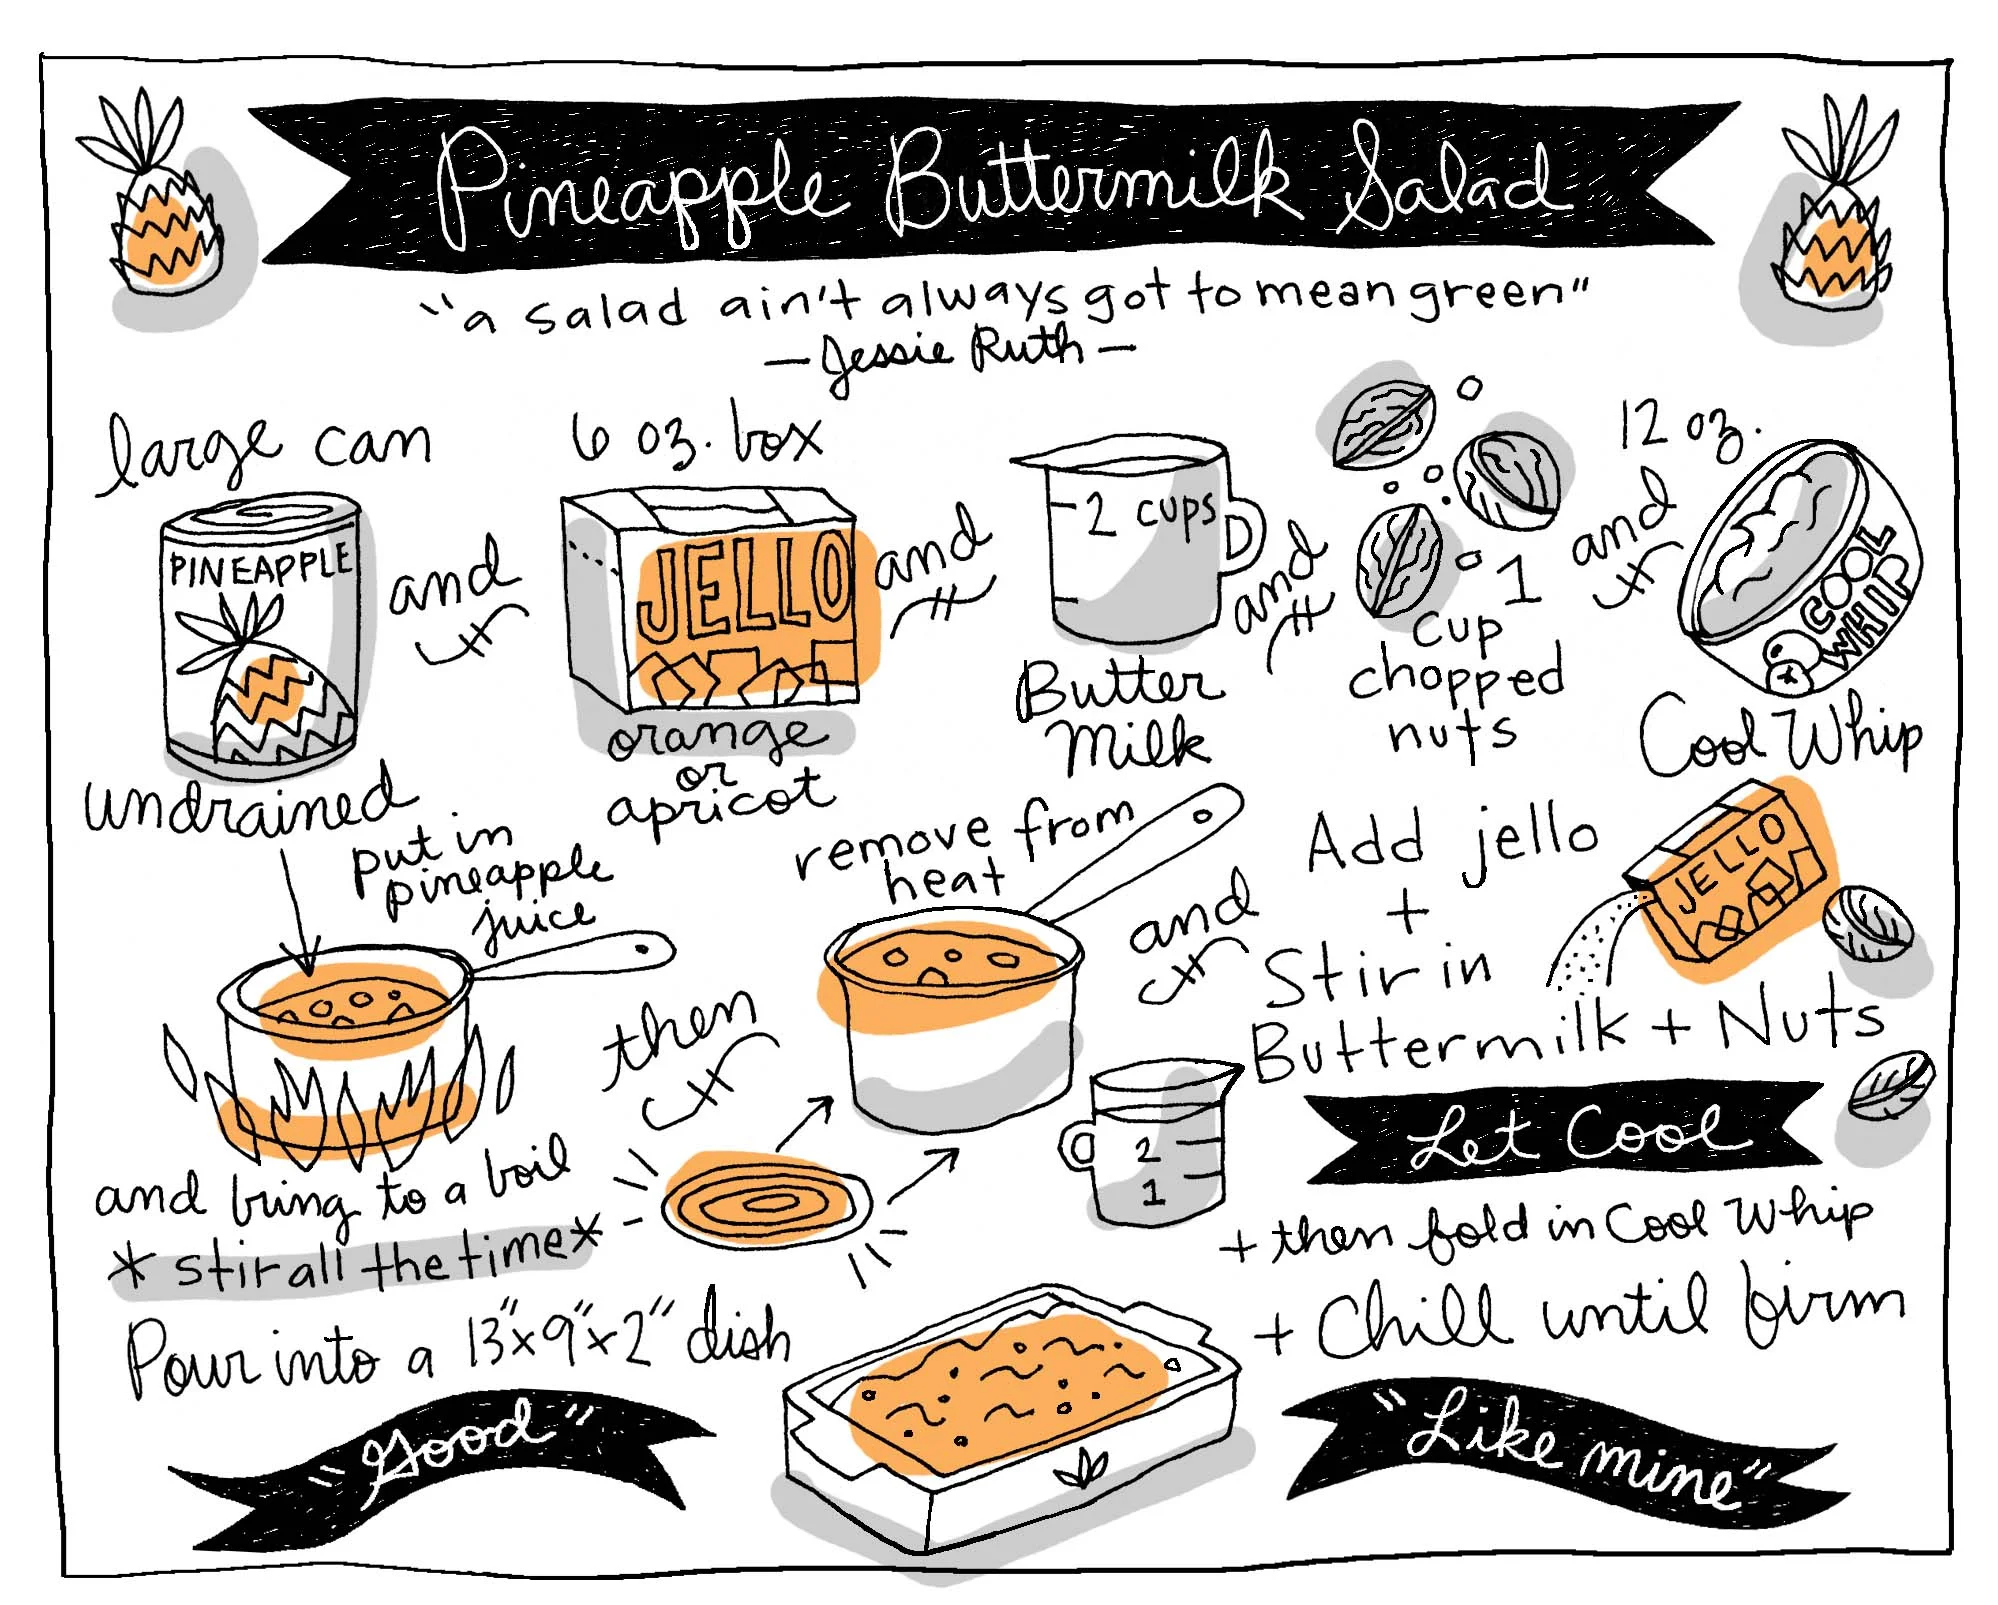 Pineapple Buttermilk Salad
"a salad ain't always got to mean green"
— Jessie Ruth —
large can
PINEAPPLE
undrained
and
6 oz. box
JELLO
orange
or
apricot
and
2 CUPS
Butter
Milk
and
1
cup
chopped
nuts
and
12 oz.
COOL
WHIP
Cool Whip
put in
pineapple
juice
and bring to a boil
* stir all the time *
then
remove from
heat
and
2
1
Add jello
+
Stir in
Buttermilk + Nuts
JELLO
Let Cool
+ then fold in Cool Whip
+ Chill until firm
Pour into a 13"x9"x2" dish
"Good"
"Like mine"